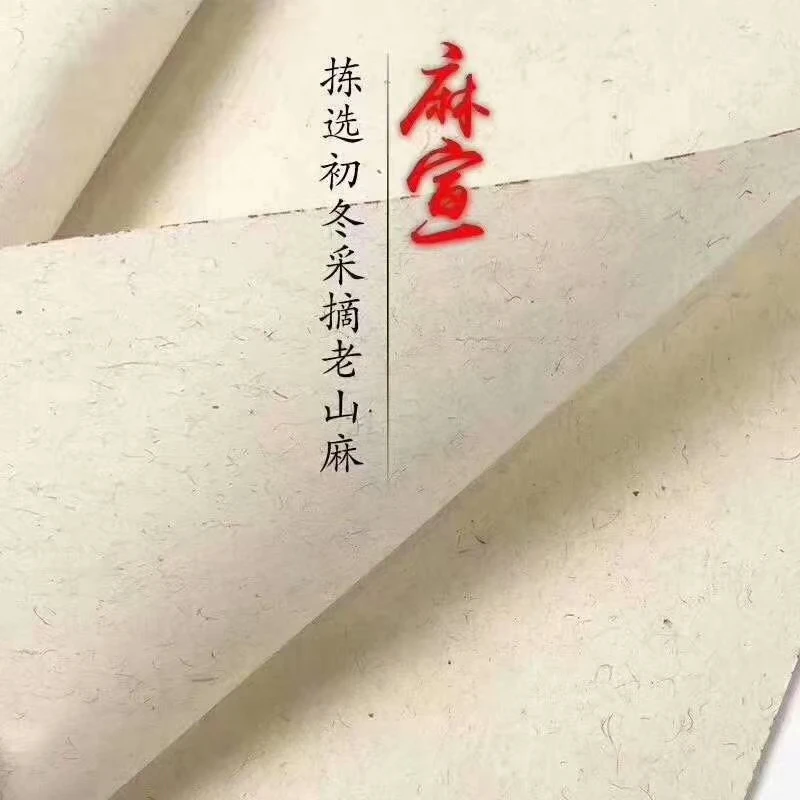 麻宣
拣选初冬采摘老山麻